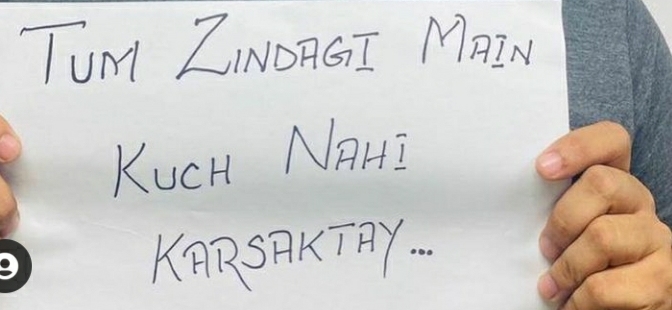 TUM ZINDAGI MAIN
KUCH NAHI
KARSAKTAY...